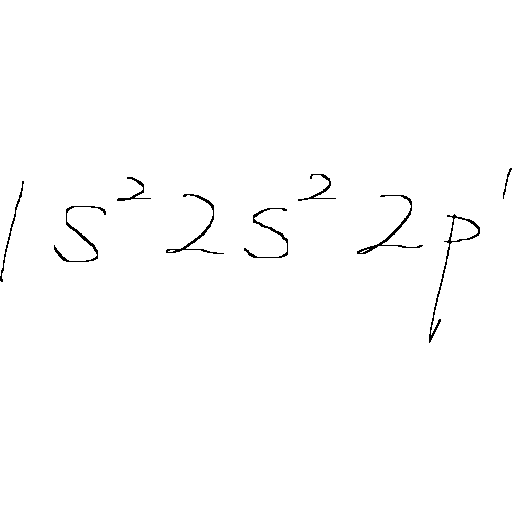 1s² 2s² 2p¹